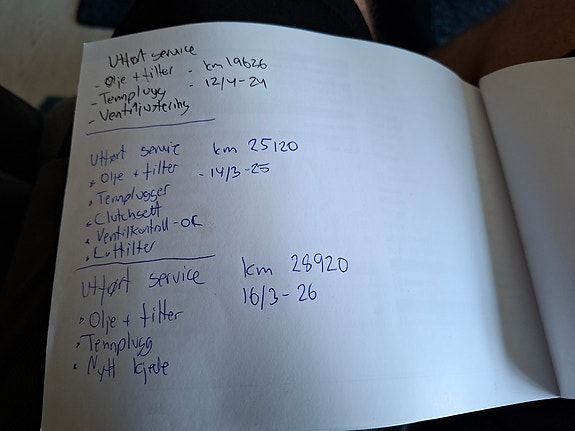 Utført service
- Olje + filter - km 19626
- Tennplugg - 12/4-24
- Ventiljustering
Utført service km 25120
• Olje + filter - 14/3-25
• Tennplugger
• Clutchsett
• Ventilkontroll - OK
• Luftfilter
Utført service km 28920
16/3-26
• Olje + filter
• Tennplugg
• Nytt kjede